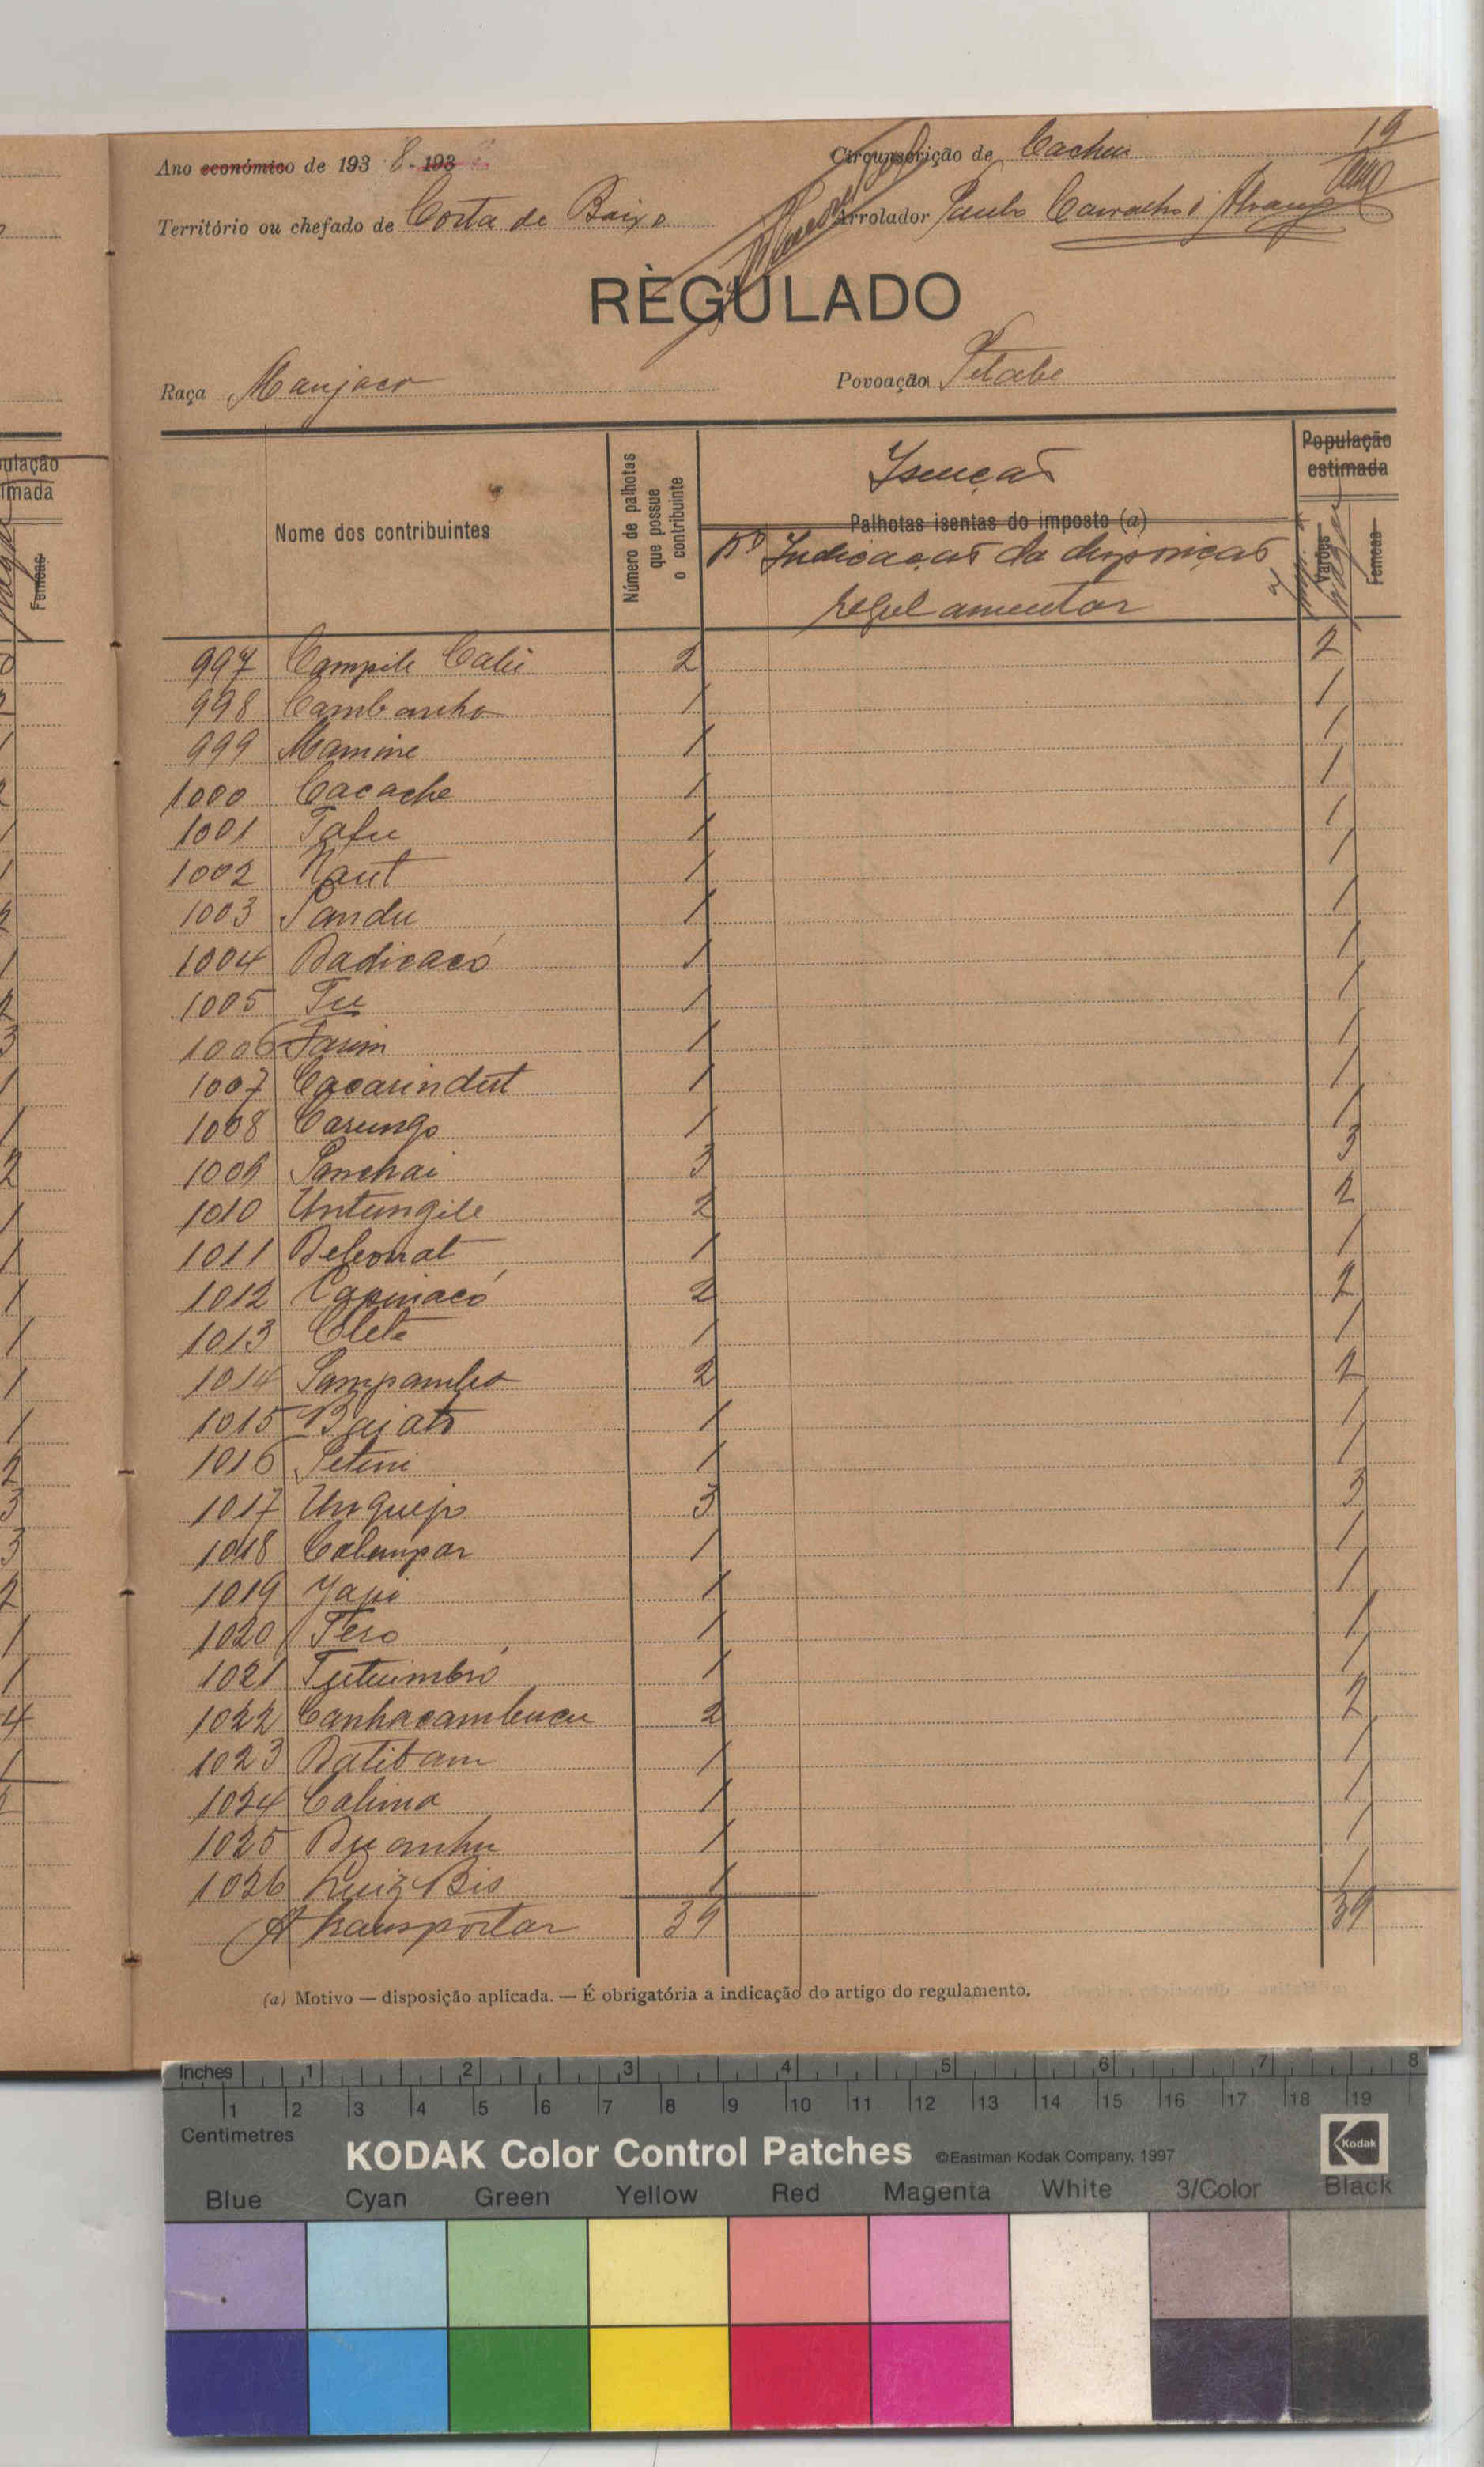 19
Ano económico de 193 8-193
Circunscrição de Cacheu
Território ou chefado de Costa de Baixo
Arrolador Paulo Carvalho d'Alvarenga
RÈGULADO
Raça Manjaco
Povoação
População
estimada
Nome dos contribuintes
Número de palhotas
que possue
o contribuinte
Isenção
Palhotas isentas do imposto (a)
Nº Indicação da disposição
regulamentar
Varões
Femeas
997 Campile Calii 2 2
998 Cambancho 1 1
999 Mamine 1 1
1000 Cacache 1 1
1001 Tafu 1 1
1002 Naut 1 1
1003 Sandu 1 1
1004 Badicacó 1 1
1005 Tu 1 1
1006 Farim 1 1
1007 Cacarindut 1 1
1008 Carungo 1 1
1009 Sanchai 3 3
1010 Untungile 2 2
1011 Belconat 1 1
1012 Capinacó 2 2
1013 Clete 1 1
1014 Sampambo 2 2
1015 Baiato 1 1
1016 Petini 1 1
1017 Unquejo 3 3
1018 Calumpar 1 1
1019 Japi 1 1
1020 Tesó 1 1
1021 Tutuimbró 1 1
1022 Canhacambucu 2 2
1023 Batibam 1 1
1024 Calima 1 1
1025 Buanhu 1 1
1026 Luiz Bis 1 1
A transportar 39 39
(a) Motivo — disposição aplicada. — É obrigatória a indicação do artigo do regulamento.
ulação
imada
Femeas
Inches 1 2 3 4 5 6 7 8
1 2 3 4 5 6 7 8 9 10 11 12 13 14 15 16 17 18 19
Centimetres
KODAK Color Control Patches ©Eastman Kodak Company, 1997 Kodak
Blue Cyan Green Yellow Red Magenta White 3/Color Black